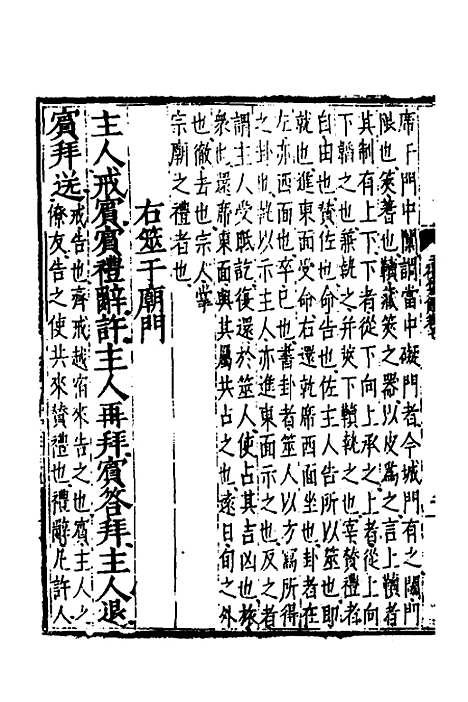 席于門中闑謂當中礙門者今城門有之閾門
限也筴蓍也韇藏筴之器以皮爲之言上韇者
其制有上下下者從下向上承之上者從上向
下韜之也兼執之并抜下韇執之也宰贊禮者
自由也贊佐也命告也佐主人告所以筮也即
就也進東面受命右還就席西面坐也卦者在
左亦西面也卒巳也書卦者筮人以方寫所得
之卦也執以示主人亦進東面示之也反之者
謂主人受眡訖復還於筮人使占其吉凶也旅
衆也還席東面與其屬共占之也遠日旬之外
也徹去也宗人掌
宗廟之禮者也
右筮于廟門
主人戒賓賓禮辭許主人再拜賓答拜主人退
賓拜送
戒告也齊戒越宿來告之也賓主人之
僚友告之使共來贊禮也禮辭凡許人